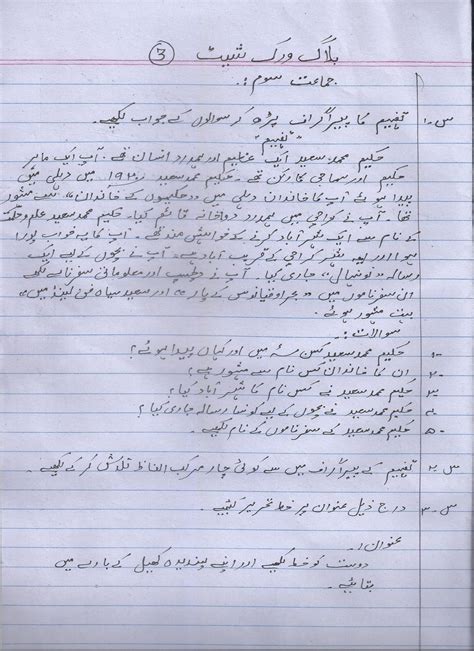 بلاک ورک شیٹ 3
جماعت سوم :.
س۔۱ تفہیم کا پیراگراف پڑھ کر سوالوں کے جواب لکھیے۔
"تفہیم"
حکیم محمد سعید ایک عظیم اور ہمدرد انسان تھے۔ آپ ایک ماہر
حکیم اور سماجی کارکن تھے۔ حکیم محمد سعید ۱۹۲۰ء میں دہلی میں
پیدا ہوئے آپ کا خاندان دہلی میں "حکیموں کے خاندان" سے مشہور
تھا۔ آپ نے کراچی میں ہمدرد دواخانہ قائم کیا۔ حکیم محمد سعید علم و حکمت
کے نام سے ایک شہر آباد کرنے کے خواہش مند تھے۔ آپ کا یہ خواب پورا
ہوا اور یہ شہر کراچی کے قریب آباد ہے۔ آپ نے بچوں کے لیے ایک
رسالہ "نونہال" جاری کیا۔ آپ نے دلچسپ اور معلوماتی سفرنامے لکھے
ان سفرناموں میں "بحراوقیانوس کے پار" اور سعید سیاح فن لینڈ میں"
بہت مشہور ہوئے۔
سوالات:
۱۔ حکیم محمد سعید کس سنہ میں اور کہاں پیدا ہوئے؟
۲۔ ان کا خاندان کس نام سے مشہور ہے؟
۳۔ حکیم محمد سعید نے کس نام کا شہر آباد کیا؟
۴۔ حکیم محمد سعید نے بچوں کے لیے کونسا رسالہ جاری کیا؟
۵۔ حکیم محمد سعید کے سفرناموں کے نام لکھیے۔
س۔۲ تفہیم کے پیراگراف میں سے کوئی چار مرکب الفاظ تلاش کر کے لکھیے۔
س۔۳ درج ذیل عنوان پر خط تحریر کیجیے۔
عنوان:
دوست کو خط لکھیے اور اپنے پسندیدہ کھیل کے بارے میں
بتائیے۔